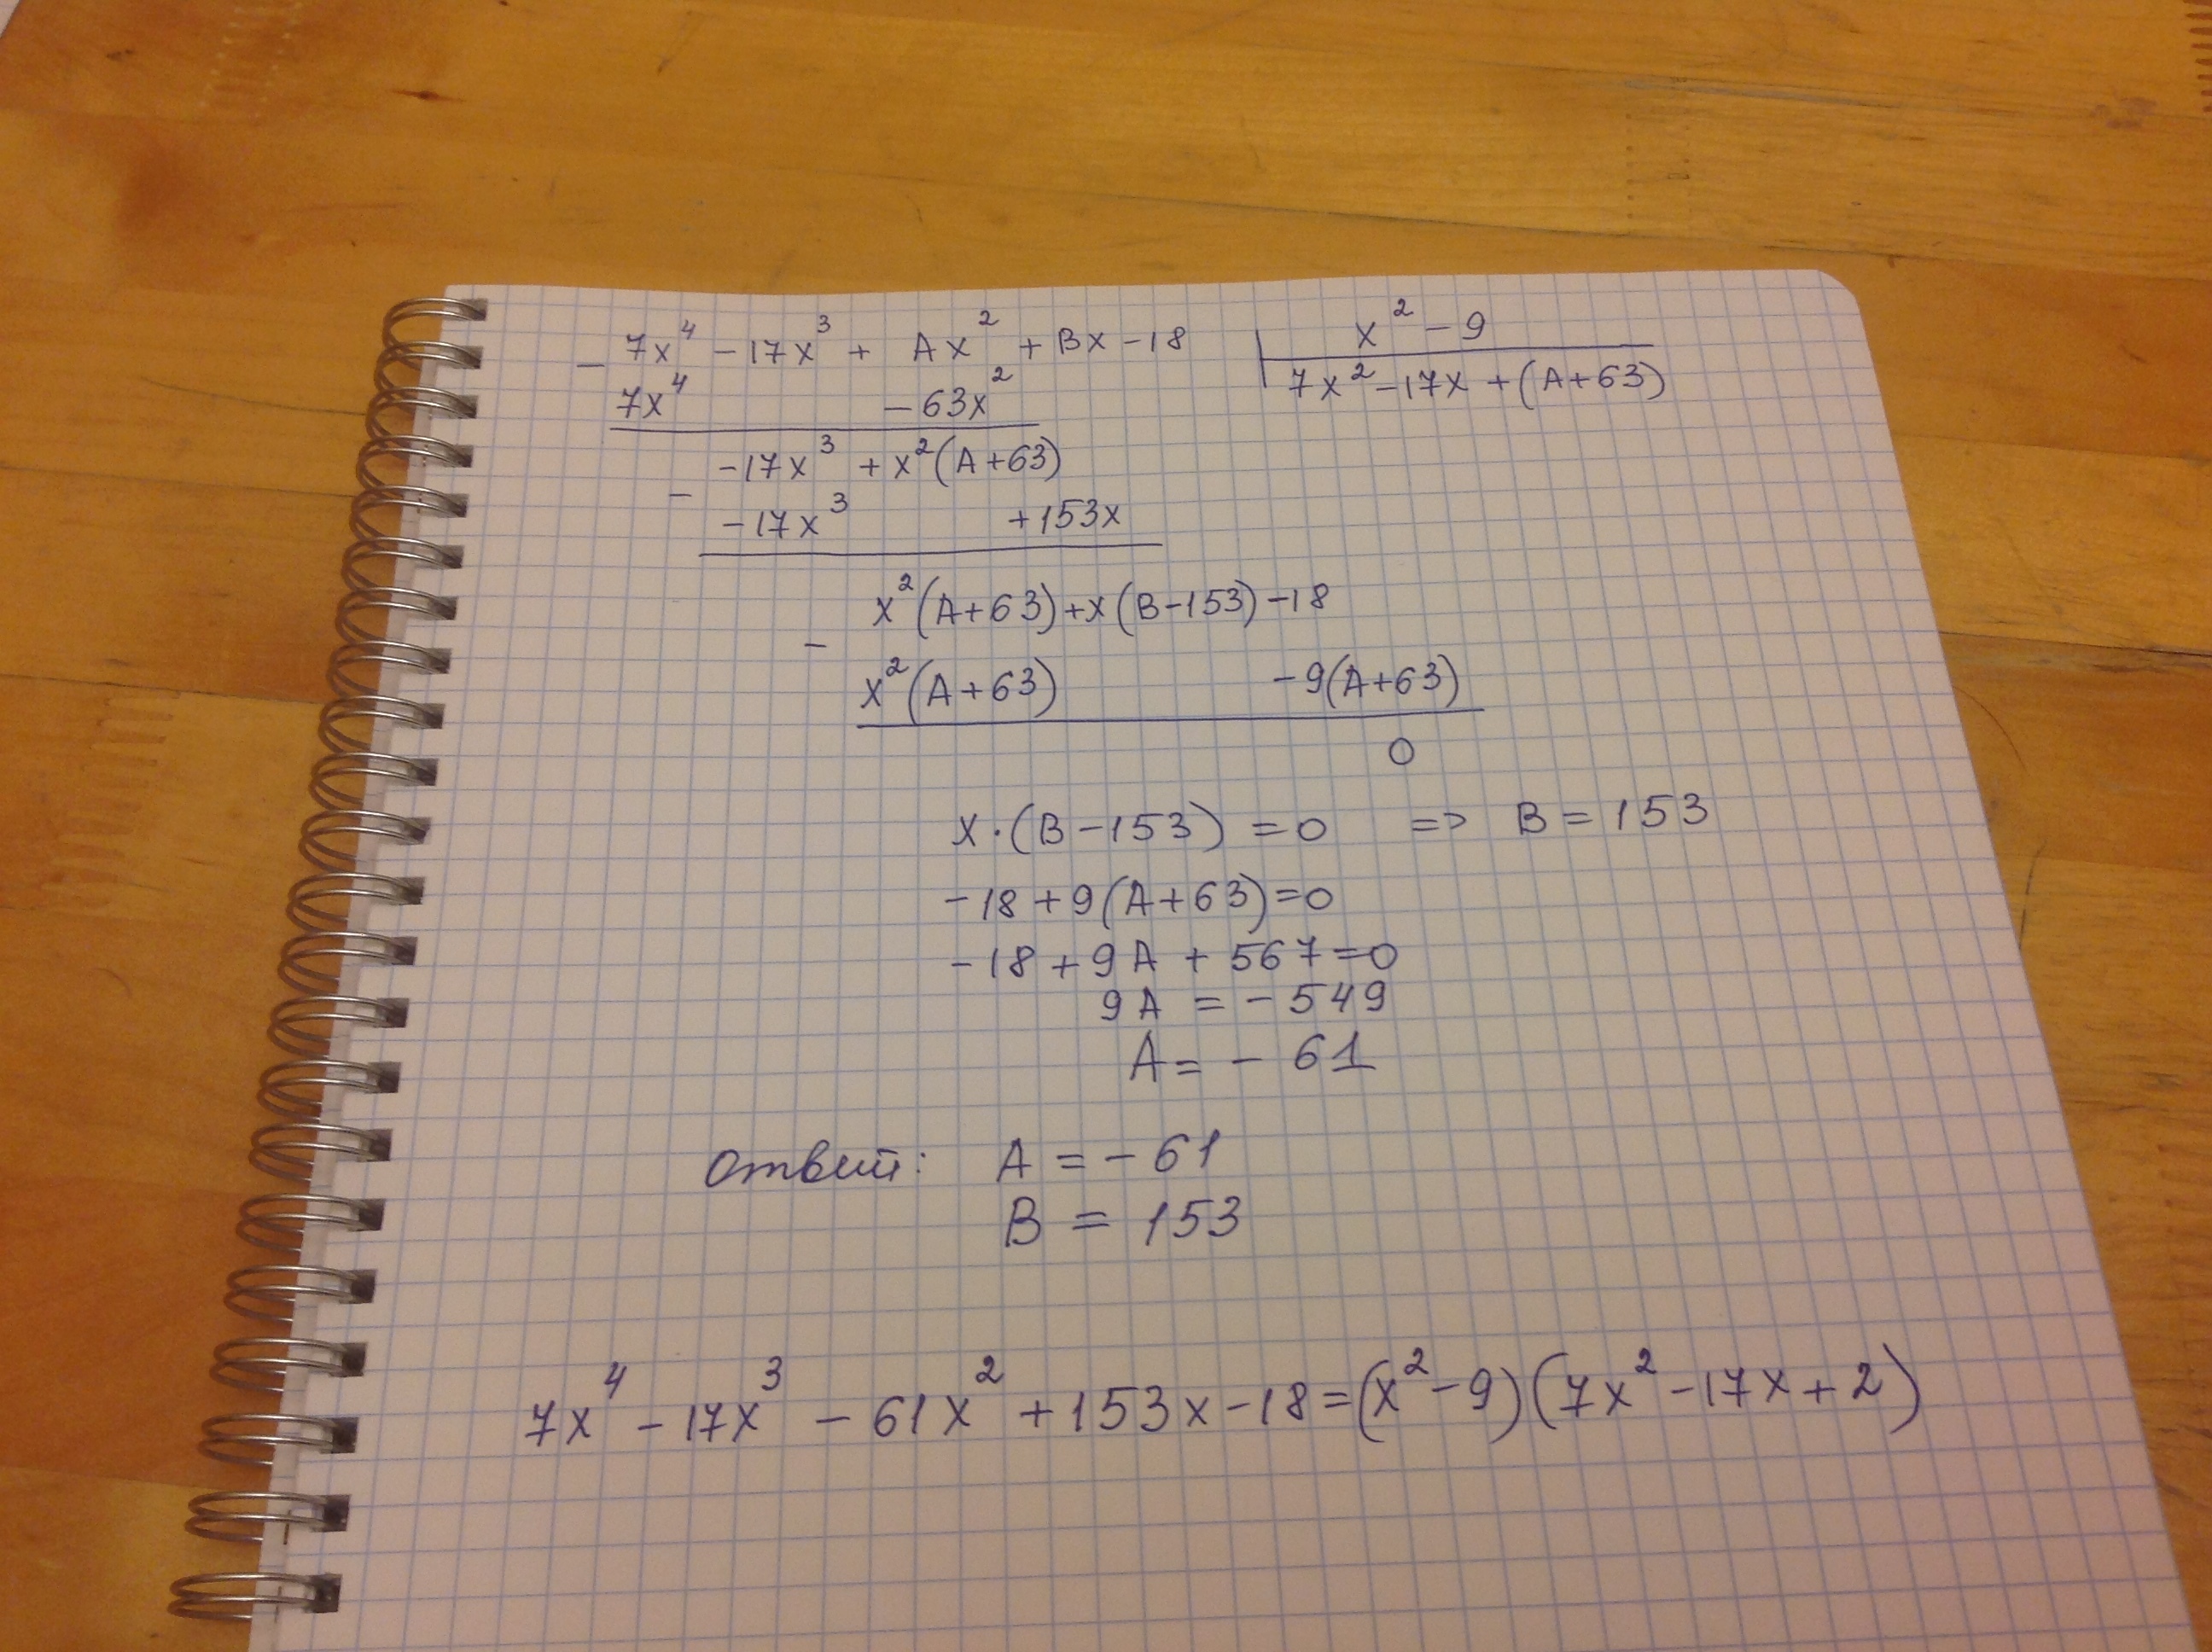 7x⁴ - 17x³ + Ax² + Bx - 18 | x² - 9
7x⁴ - 63x² | 7x² - 17x + (A+63)
- 17x³ + x²(A+63)
- 17x³ + 153x
x²(A+63) + x(B-153) - 18
x²(A+63) - 9(A+63)
0
x·(B-153) = 0 => B = 153
-18 + 9(A+63) = 0
-18 + 9A + 567 = 0
9A = - 549
A = - 61
Ответ: A = - 61
B = 153
7x⁴ - 17x³ - 61x² + 153x - 18 = (x² - 9)(7x² - 17x + 2)